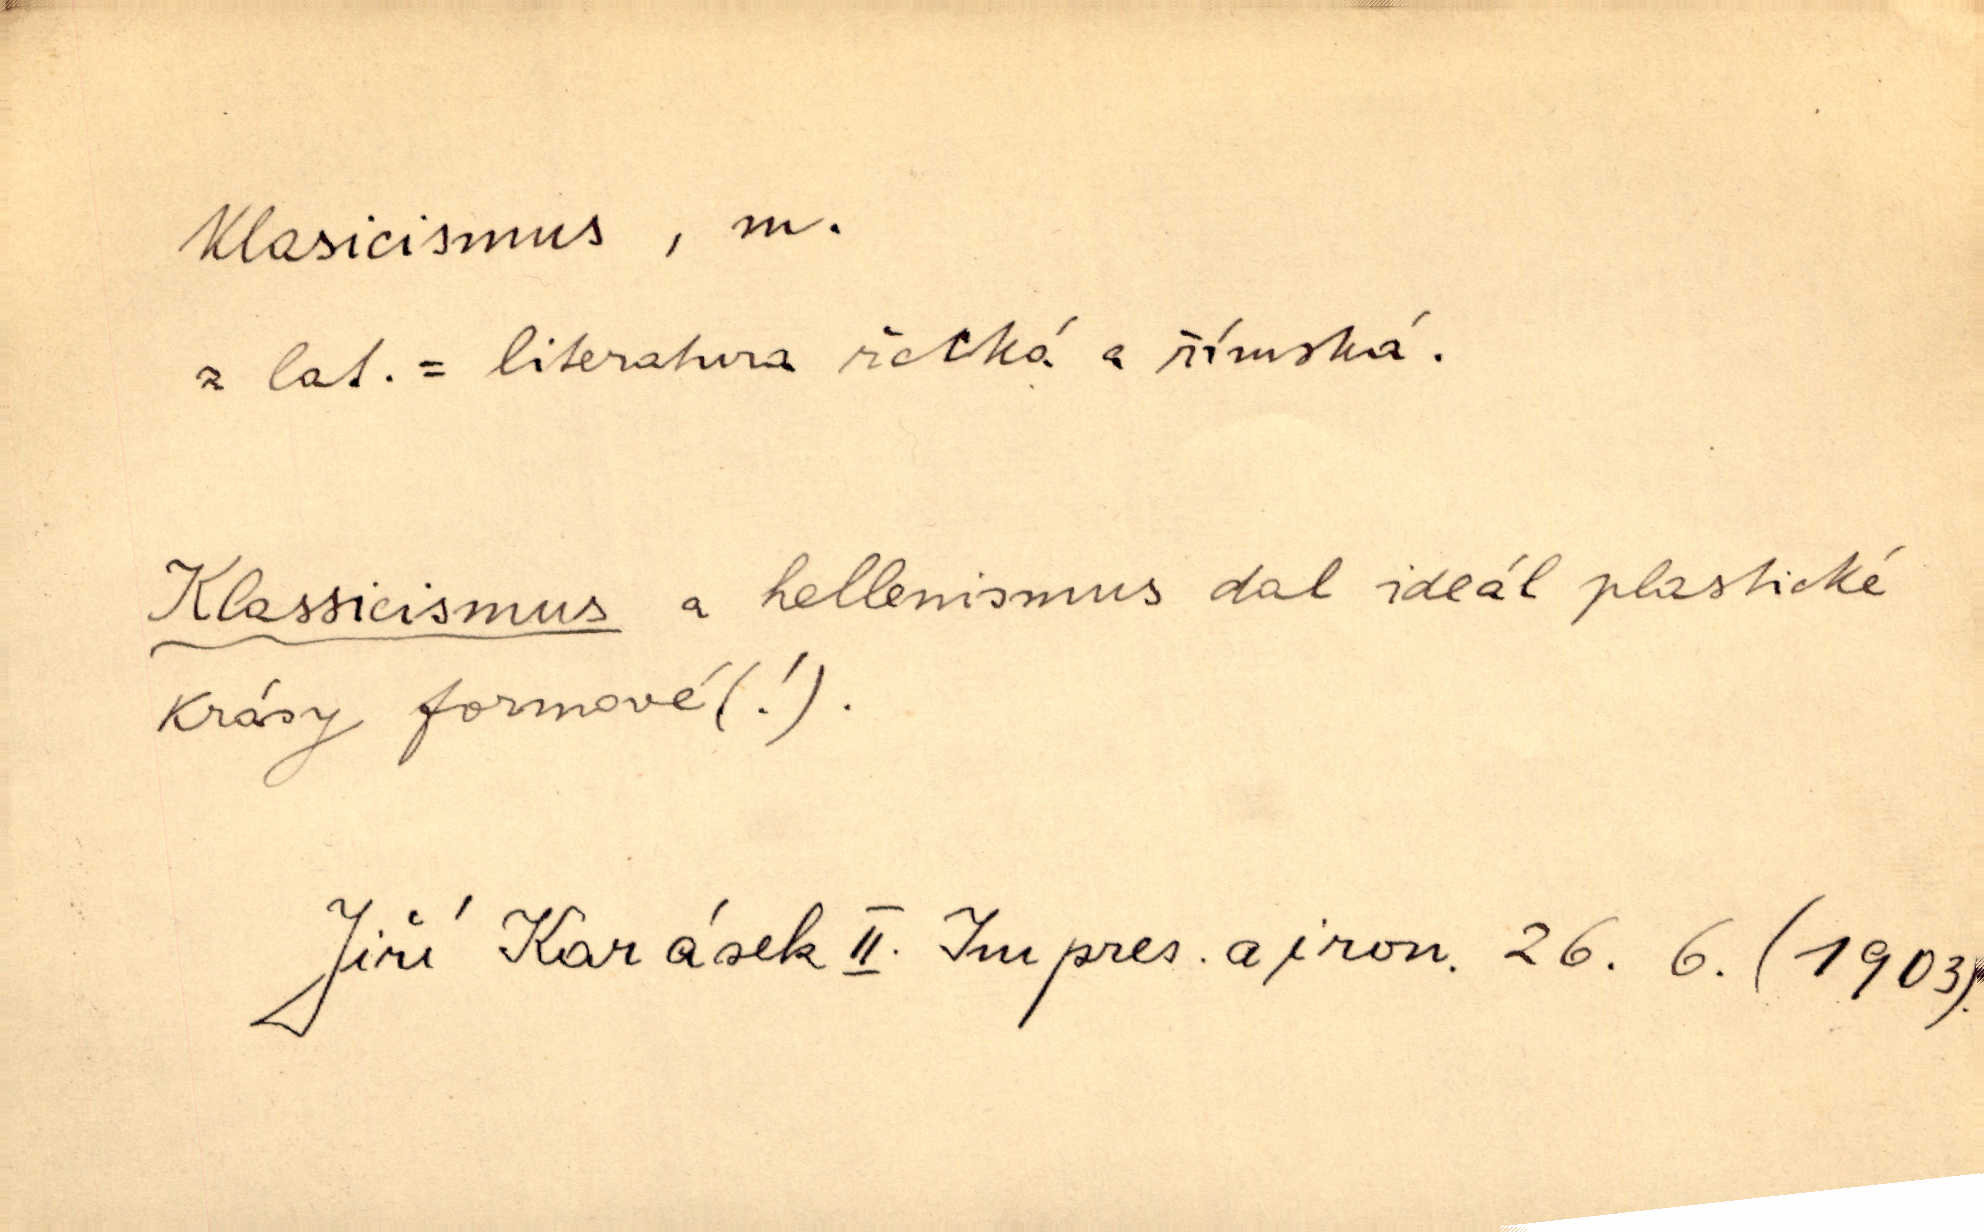 Klasicismus, m.
z lat. = literatura řecká a římská.
Klassicismus a hellenismus dal ideál plastické
krásy formové(!).
Jiří Karásek II. Impres. a iron. 26. 6. (1903).